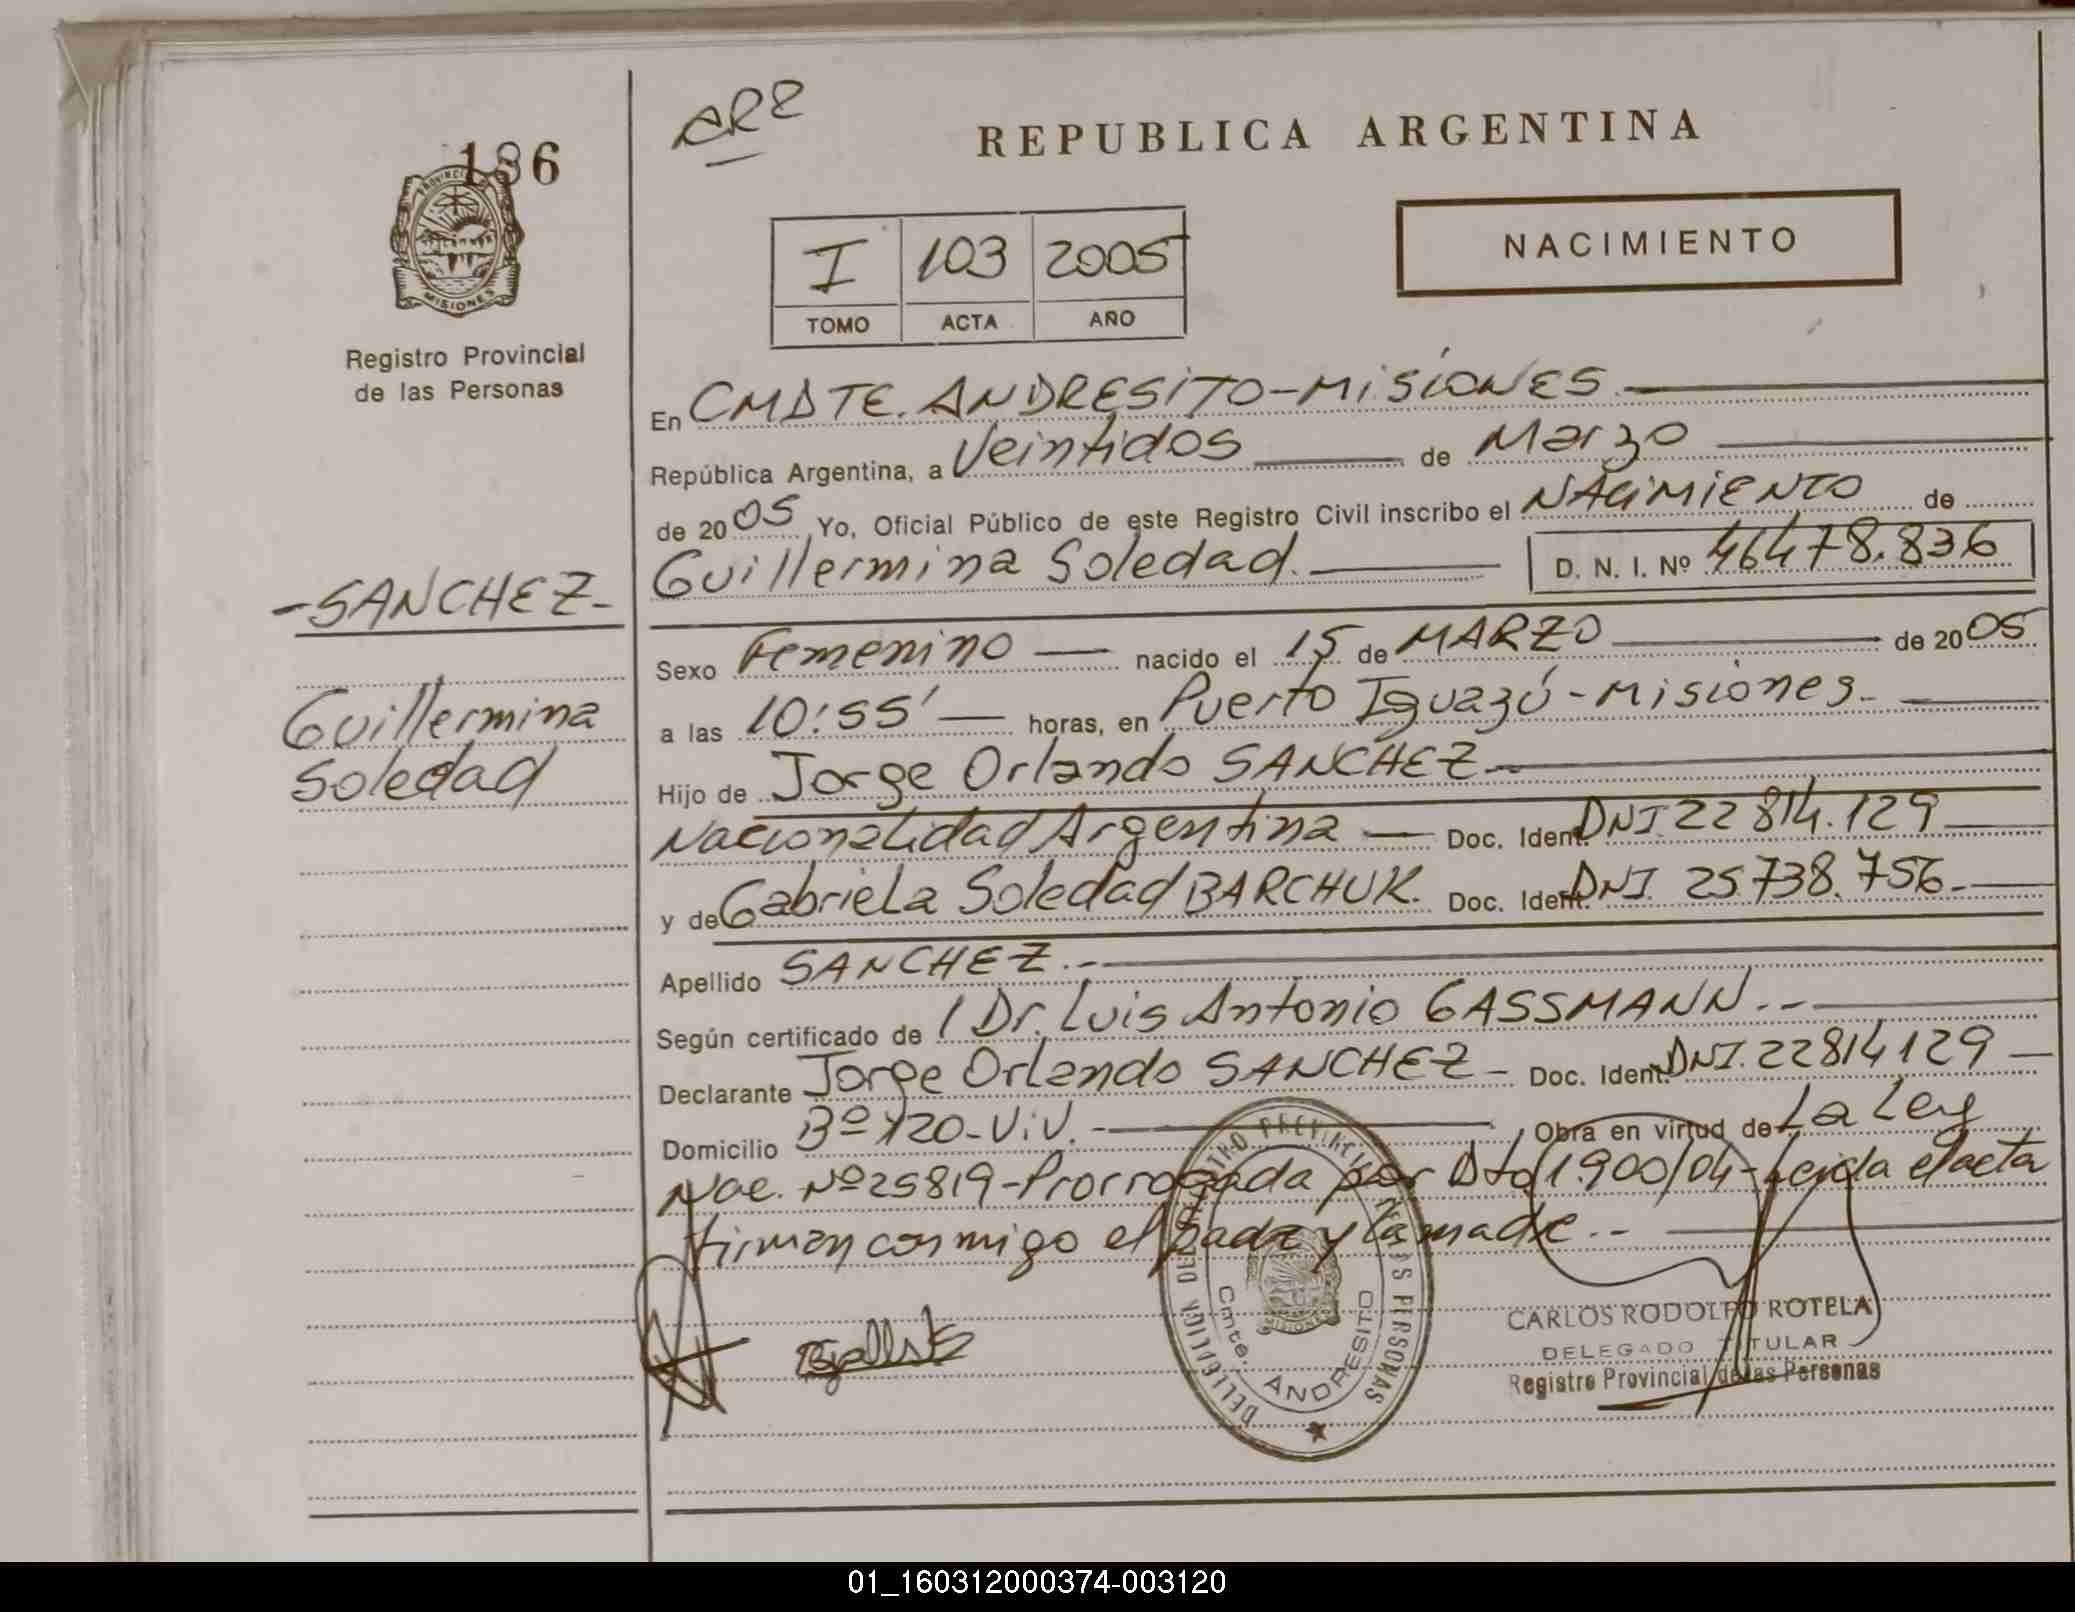 186
PROVINCIA
MISIONES
Registro Provincial
de las Personas
- SANCHEZ -
Guillermina
Soledad
REPUBLICA ARGENTINA
I 103 2005
TOMO ACTA AÑO
NACIMIENTO
En CMDTE. ANDRESITO - MISIONES.
República Argentina, a Veintidos de Marzo
de 2005 Yo, Oficial Público de este Registro Civil inscribo el NACIMIENTO de
Guillermina Soledad. D. N. I. Nº 46478.836
Sexo Femenino nacido el 15 de MARZO de 2005
a las 10:55' horas, en Puerto Iguazú - Misiones.
Hijo de Jorge Orlando SANCHEZ
Nacionalidad Argentina Doc. Ident. DNI. 22814.129
y de Gabriela Soledad BARCHUK. Doc. Ident. DNI. 25738.756.
Apellido SANCHEZ.-
Según certificado de Dr. Luis Antonio GASSMANN.-
Declarante Jorge Orlando SANCHEZ - Doc. Ident. DNI. 22814129
Domicilio Bº 120-Viv.- Obra en virtud de La Ley
Nac. Nº 25819 - Prorrogada por Dto 1.900/04 - Leida el acta
firman conmigo el padre y la madre.-
Cmte. ANDRESITO
MISIONES
CARLOS RODOLFO ROTELA
DELEGADO TITULAR
Registro Provincial de las Personas
01_160312000374-003120